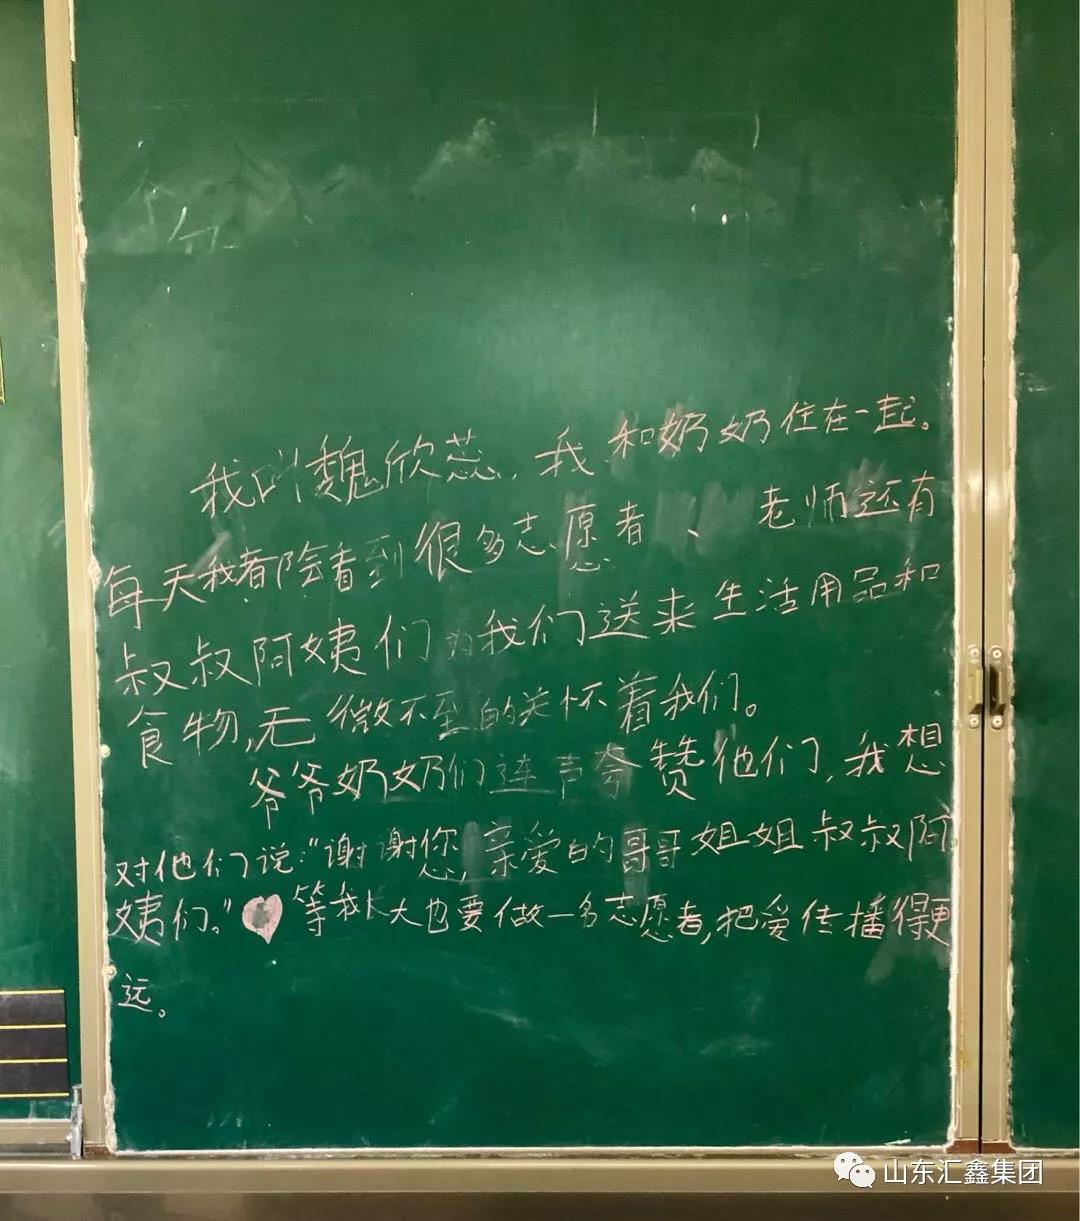 我叫魏欣蕊,我和奶奶住在一起。
每天我都会看到很多志愿者、老师还有
叔叔阿姨们为我们送来生活用品和
食物,无微不至的关怀着我们。
爷爷奶奶们连声夸赞他们,我想
对他们说:“谢谢您,亲爱的哥哥姐姐叔叔阿
姨们。”等我长大也要做一名志愿者,把爱传播得更
远。
山东汇鑫集团